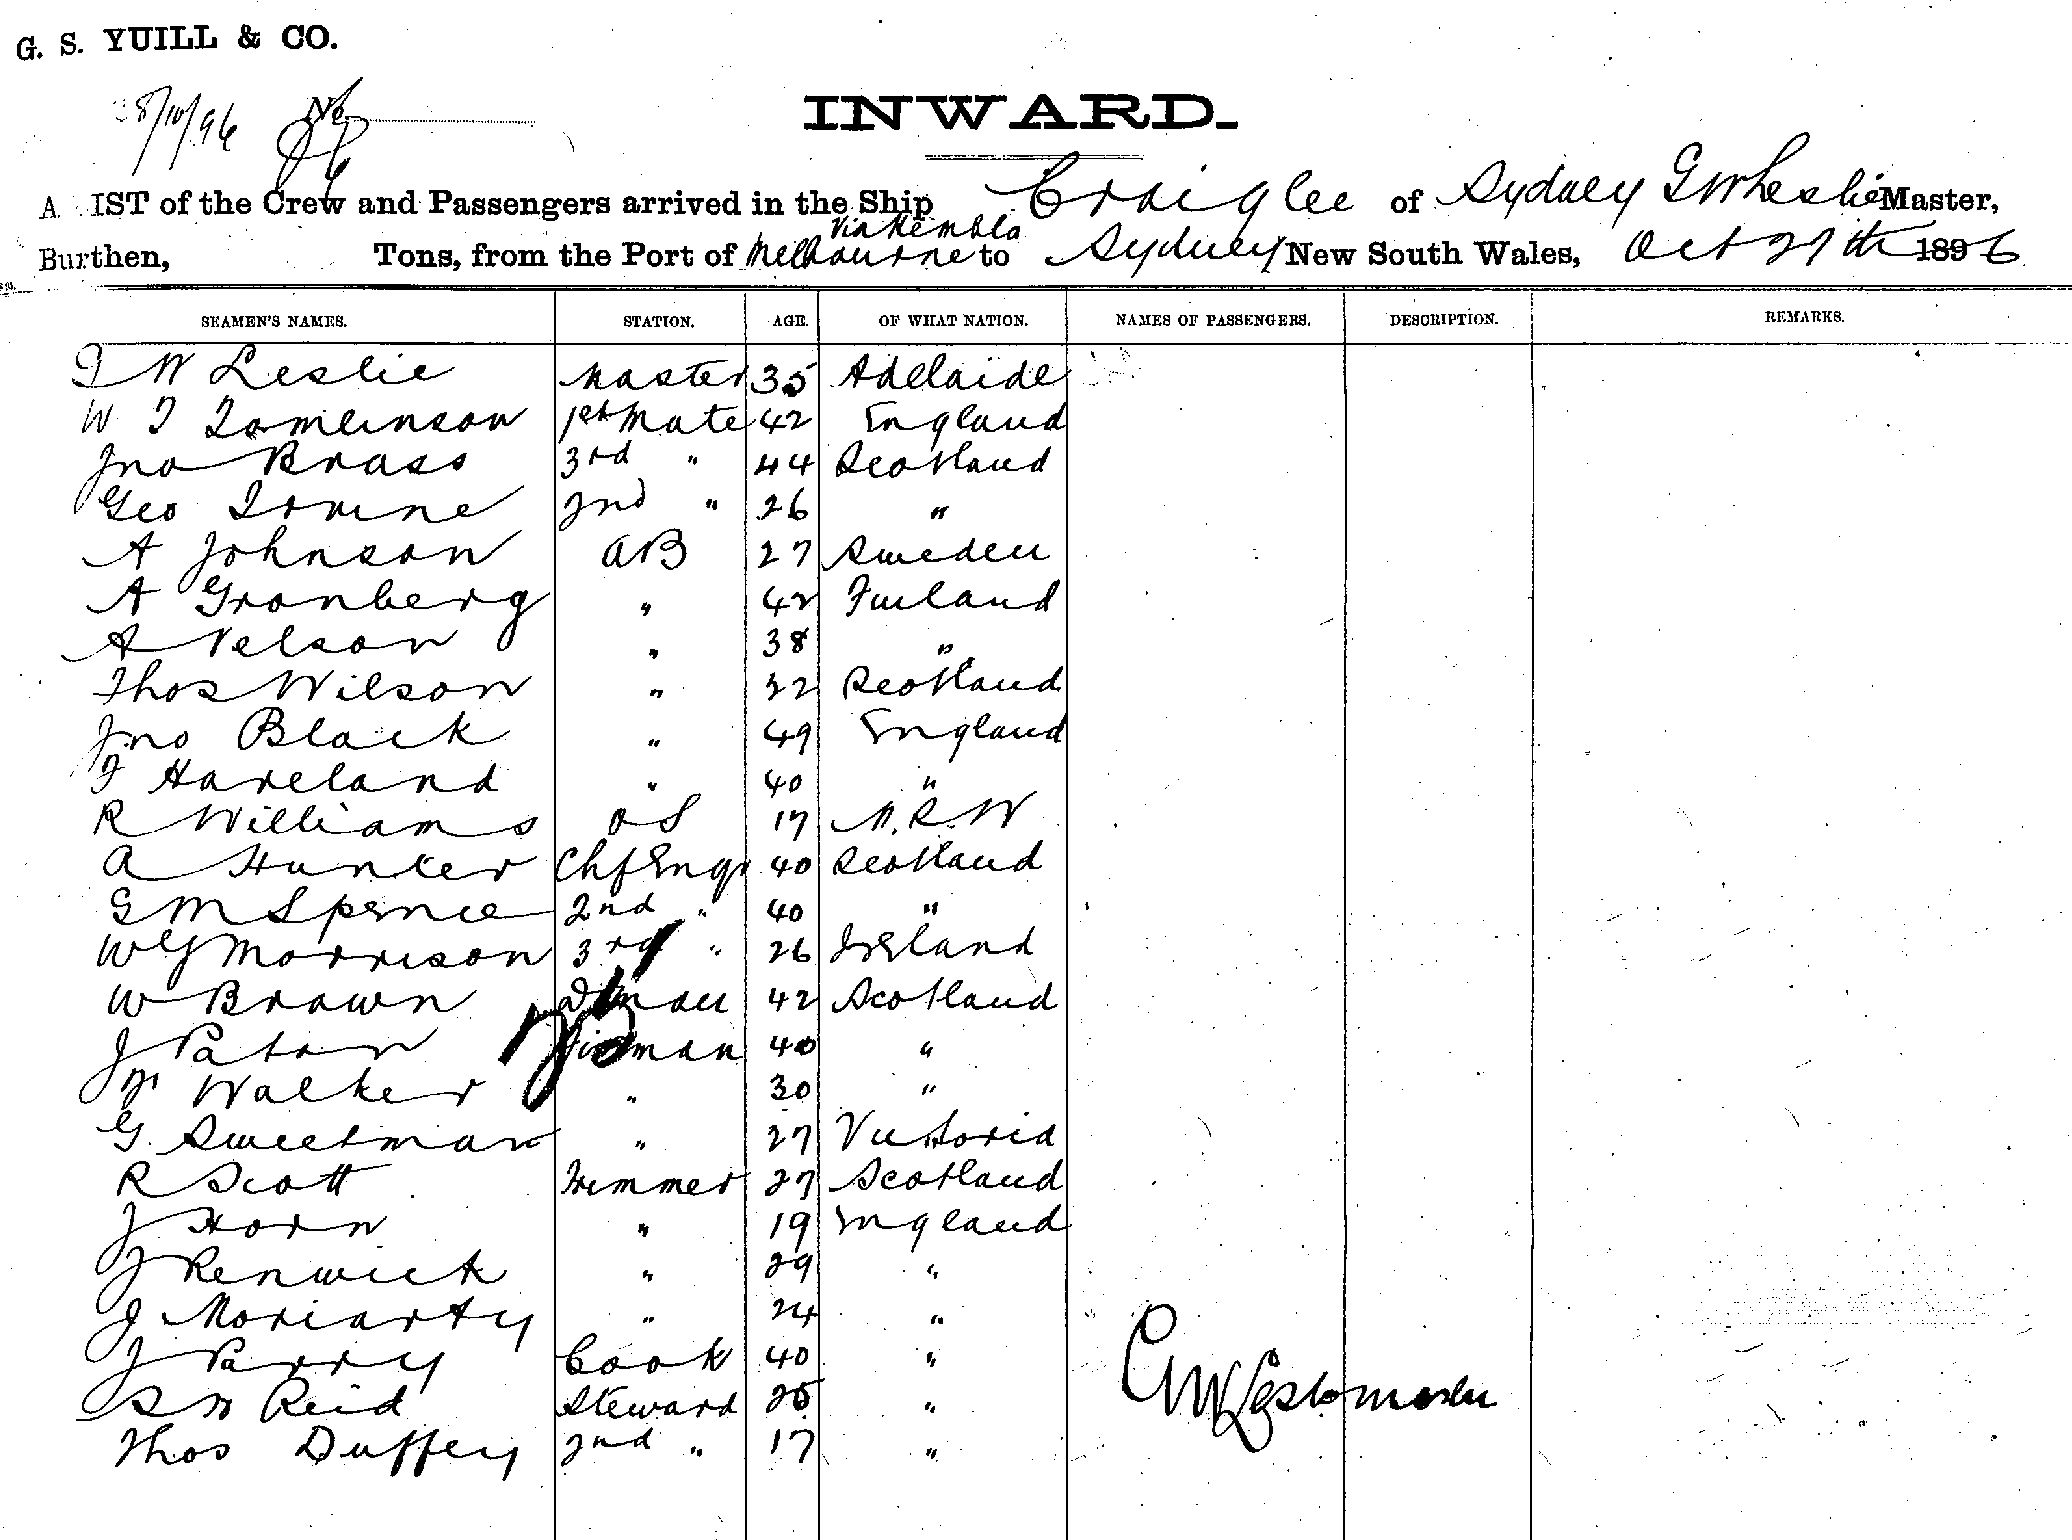 G. S. YUILL & CO.
28/10/96 No
INWARD.
A IST of the Crew and Passengers arrived in the Ship Craiglee of Sydney G W Leslie Master,
via Kembla
Burthen, Tons, from the Port of Melbourne to Sydney New South Wales, Oct 27th 1896
SEAMEN'S NAMES. STATION. AGE. OF WHAT NATION. NAMES OF PASSENGERS. DESCRIPTION. REMARKS.
G W Leslie Master 35 Adelaide
W T Tomlinson 1st Mate 42 England
Jno Brass 3rd " 44 Scotland
Geo Irvine 2nd " 26 "
A Johnson AB 27 Sweden
A Gronberg " 42 Finland
A Nelson " 38 "
Thos Wilson " 32 Scotland
Jno Black " 49 England
F Hareland " 40 "
R Williams OS 17 N.S.W
A Hunter Chf Engr 40 Scotland
G M Spence 2nd " 40 "
W G Morrison 3rd " 26 Ireland
W Brown 42 Scotland
J Paton Fireman 40 "
Walker " 30 "
G. Sweetman " 27 Victoria
R Scott Trimmer 27 Scotland
J Horn " 19 England
J Renwick " 29 "
J Moriarty " 24 "
J Parry Cook 40 "
S W Reid Steward 25 "
Thos Duffey 2nd " 17 "
G W Leslie master